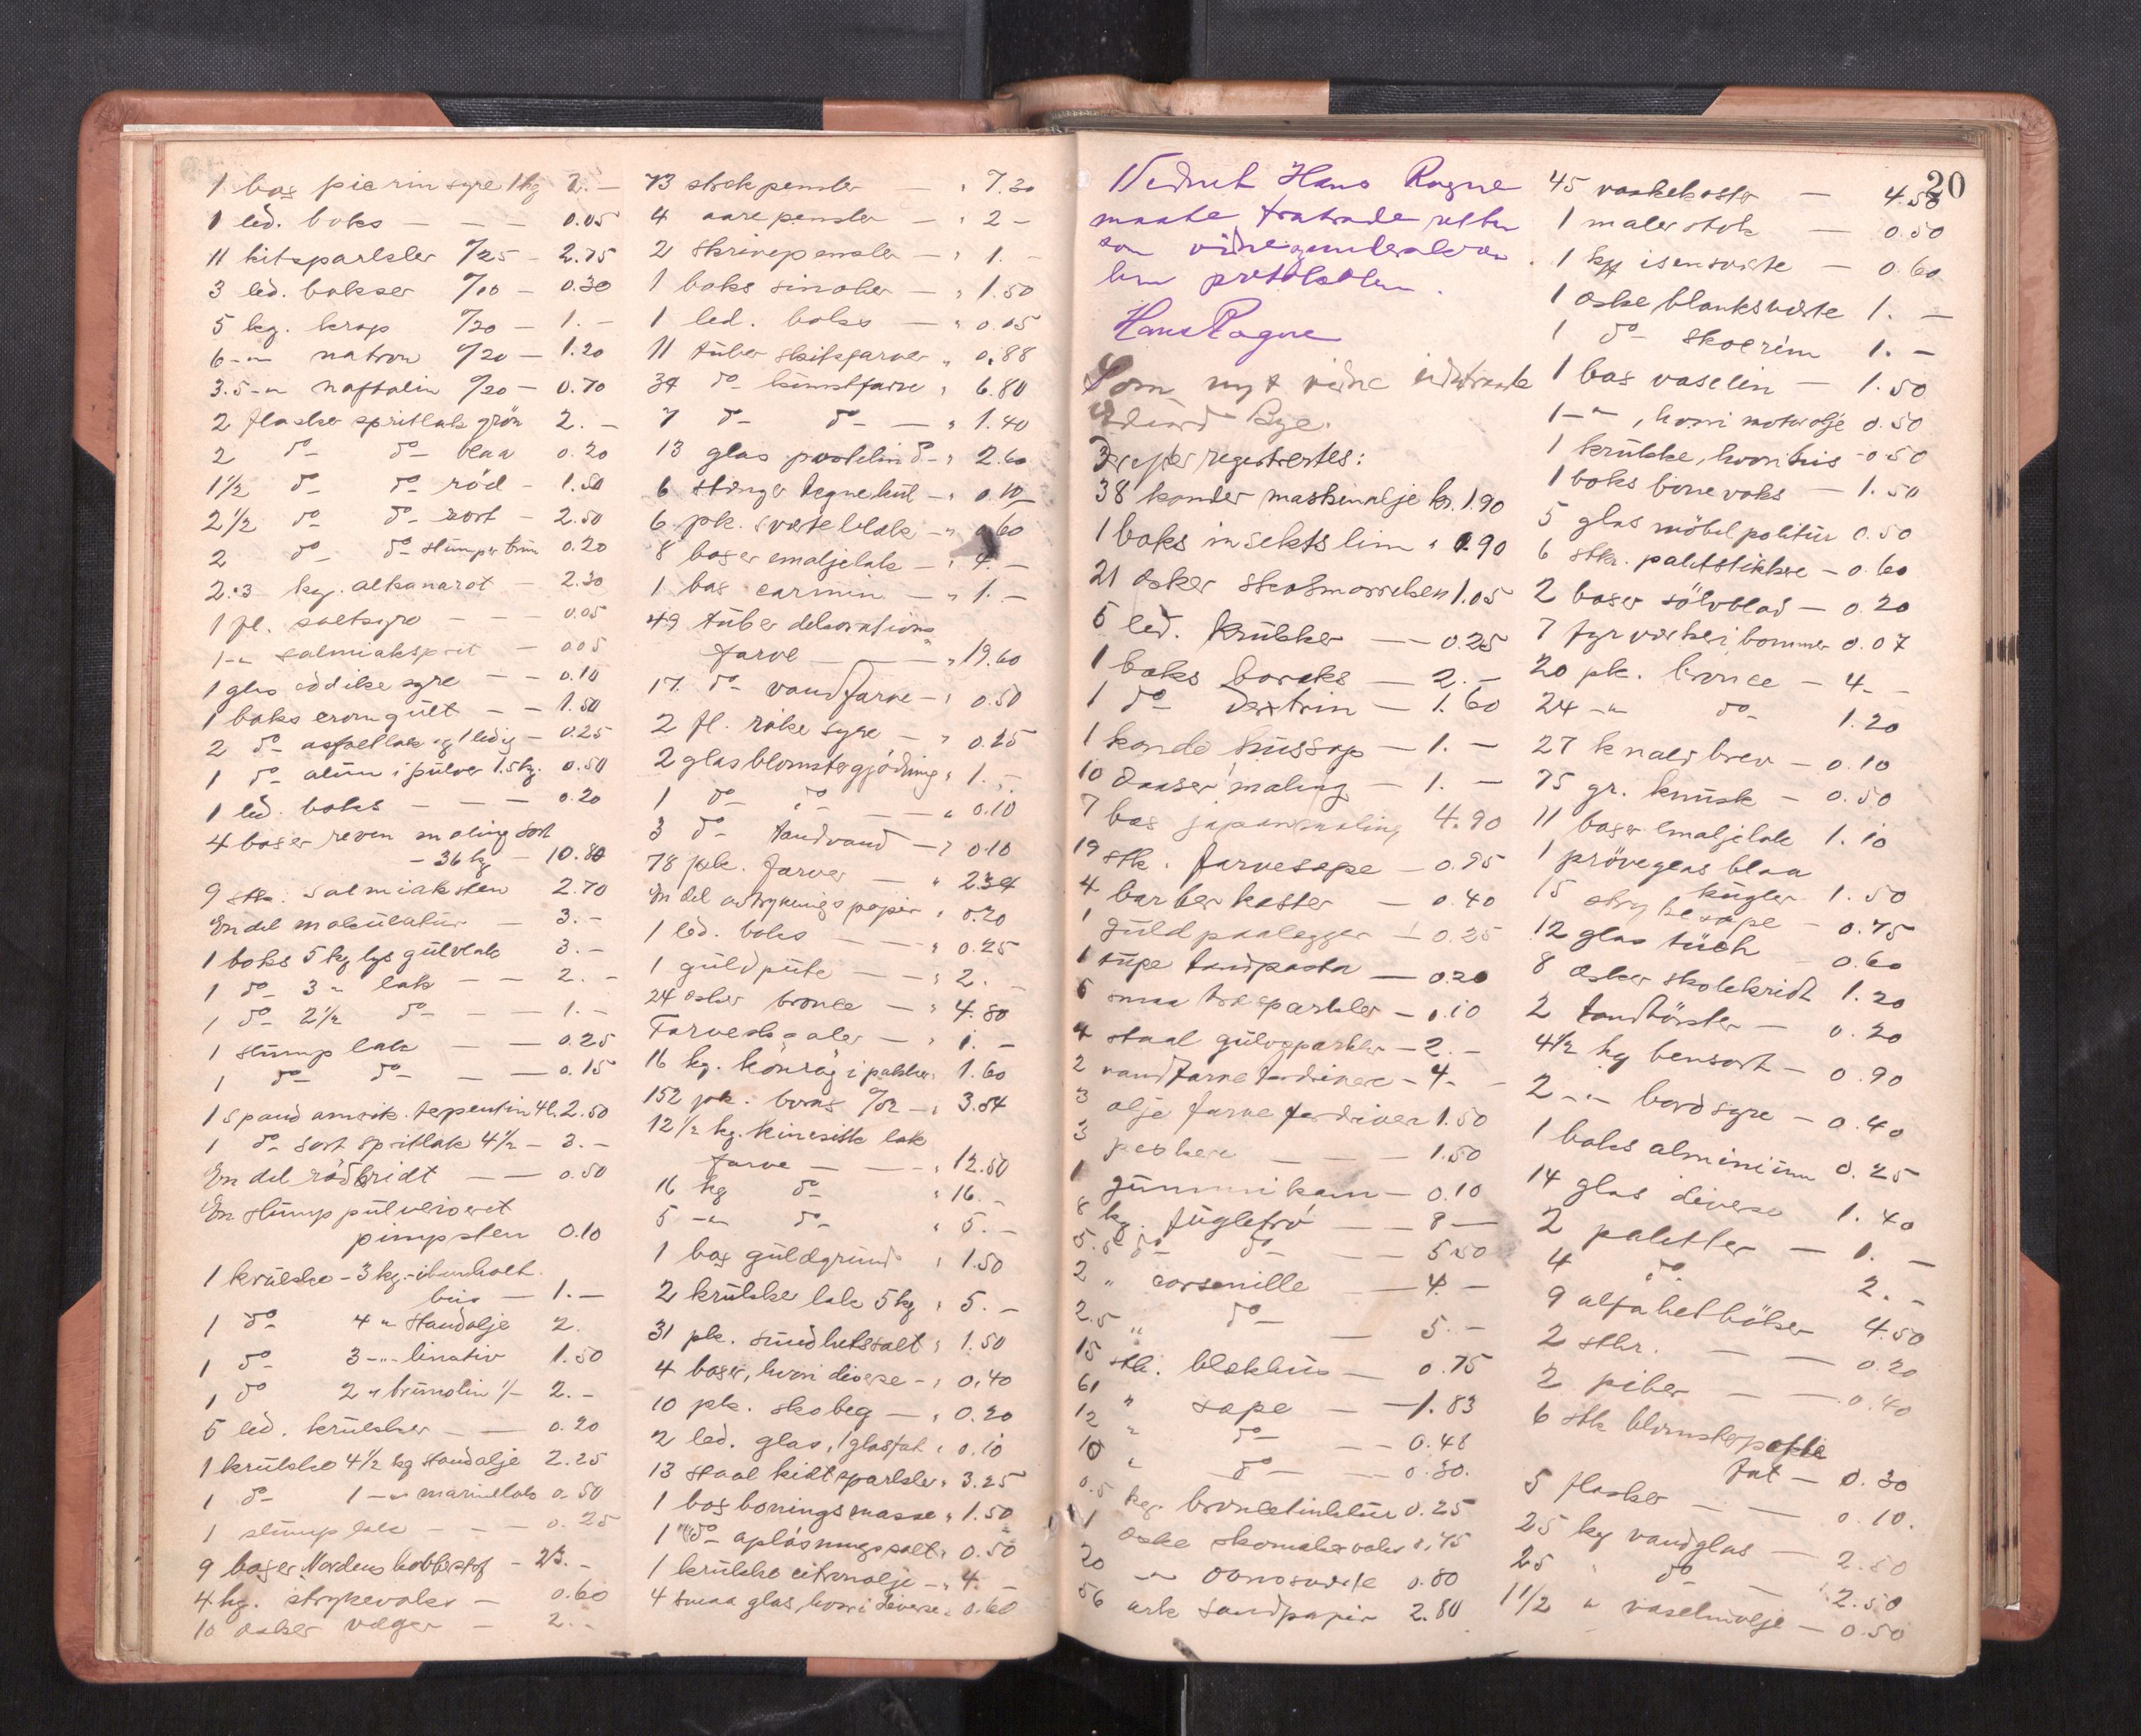 1 box picrinsyre 1 kg 2. —
1 led. boks — — — 0.05
11 kitsparkler 0/25 — 2.75
3 led. bokser 0/10 — 0.30
5 kg. krap 0/20 — 1. —
6 -"- natron 0/20 — 1.20
3.5 -"- naftalin 0/20 — 0.70
2 flasker spritlak grön 2. —
2 do do blaa 0.20
1 1/2 do do röd — 1.50
2 1/2 do do sort — 2.50
2 do do stumper brun 0.20
2.3 kg. alkanarot — 2.30
1 fl. saltsyre — — — 0.05
1 -"- salmiaksprit — 0.05
1 glas eddikesyre — — 0.10
1 boks cromgült — — 1.50
2 do asfaltlak og 1 ledig — 0.25
1 do alün i pülver 1.5 kg. 0.50
1 led. boks — — — 0.20
4 boxer reven maling sort
— 36 kg — 10.80
9 stk. salmiaksten 2.70
En del makülatür — 3. —
1 boks 5 kg lys gülvlak 3. —
1 do 3 " lak — — 2. —
1 do 2 1/2 do — — 1. —
1 stümp lak — — 0.25
1 do do — — 0.15
1 spand amrik. terpentin 4 l. 2.50
1 do sort spritlak 4 1/2 — 3. —
En del rödkridt — — 0.50
En stümp pülveriseret
pimpsten 0.10
1 krükke — 3 kg. ibenholt
beis — 1. —
1 do 4 " standolje 2.
1 do 3 -"- linativ 1.50
1 do 2 " brünolin 1/- 2. —
5 led. krükker — — 0.20
1 krükke 4 1/2 kg standolje 2.25
1 do 1 -"- marinelak 0.50
1 stümp lak — — — 0.25
9 boxer Nordens kobberstof — 23. —
4 kg. strykevoks — 0.60
10 esker væger — 2. —
73 strekpensler — " 7.30
4 aarepensler — " 2 —
2 skrivepensler — " 1. —
1 boks sinober — " 1.50
1 led. boks — " 0.05
11 tüber skitsfarver " 0.88
34 do künstfarve " 6.80
7 do do — " 1.40
13 glas porstelin do " 2.60
6 stænger tegnekül — " 0.10
6 pk. sverteblak — " 0.60
8 boxer emaljelak — " 4. —
1 box carmin — " 1. —
49 tüber dekorations
farve — — " 19.60
17 do vandfarve — " 0.50
2 fl. röke syre — " 0.25
2 glas blomstergjödning " 1. —
1 do do — — " 0.10
3 do tandvand — " 0.10
78 pk. farver — " 2.34
En del avtrykningspapir " 0.20
1 led. boks — — " 0.25
1 güldpüte — — " 2. —
24 esker bronce — " 4.80
Farveskaaler — " 1. —
16 kg. könrög i pakker " 1.60
152 pk. borax 0/02 — " 3.04
12 1/2 kg. kinesisk lak
farve — — — " 12.50
16 kg do " 16. —
5 -"- do " 5. —
1 box güldgründ " 1.50
2 krükker lak 5 kg " 5. —
31 pk. sündhetssalt " 1.50
4 boxer, hvori diverse — " 0.40
10 pk. skobeg — " 0.20
2 led. glas, 1 glasfat " 0.10
13 staal kidtsparkler " 3.25
1 box boningsmasse " 1.50
1 do oplösningssalt " 0.50
1 krükke citronolje — " 4. —
4 smaa glas, hvori diverse " 0.60
20
Vidnet Hans Rogne
maatte fratræde retten
som vidne, underskrev
hun protokollen.
Hans Rogne
Som nyt vidne indtraadte
Edvard Bye.
Derefter registrertes:
38 kander maskinolje kr. 1.90
1 boks insektslim " 0.90
21 esker skosmörelsen 1.05
5 led. krükker — — 0.25
1 boks boraks — 2. —
1 do dextrin — 1.60
1 kande hüssop — 1. —
10 daaser maling — 1. —
7 box japanmaling 4.90
19 stk. farvesepe — 0.95
4 barberkoster — 0.40
1 güldpaalegger — 0.25
1 tüpe tandpasta — 0.20
6 smaa træsparkler — 0.10
4 staal gülvsparkler — 2. —
2 vandfarve fordrivere — 4. —
3 olje farve fordriver 1.50
3 peskere — — — 1.50
1 gümmikam — 0.10
8 kg. füglefrö — — 8 —
5.5 do do — — 5.50
2 " carsenille — 4 —
2.5 " do — 5. —
15 stk. blokhüs — 0.75
61 " sæpe — — 1.83
12 " do — — 0.48
10 " do — — 0.30.
0.5 kg. broncetinktür 0.25
1 eske skomakervoks 0.75
20 -"- ovnsverte 0.80
56 ark sandpapir 2.80
45 vaskekoster — 4.50
1 malerstok — 0.50
1 kg isensverte — 0.60
1 eske blanksverte 1. —
1 do skocrem 1. —
1 box vaselin — 1.50
1 -"-, hvori motorolje 0.50
1 krükke, hvori beis — 0.50
1 boks bonevoks — 1.50
5 glas möbelpolitür 0.50
6 stk. paletstikker — 0.60
2 boxer sölvblad — 0.20
7 fyrverkeribommer 0.07
20 pk. bronce — 4. —
24 -"- do 1.20
27 knaldbrev — 0.10
75 gr. knüsk — 0.50
11 boxer emaljelak 1.10
1 pröveglas blaa
kügler 1.50
15 strykesæpe — 0.75
12 glas tüsch — 0.60
8 esker skolekridt 1.20
2 tandbörster — 0.20
4 1/2 kg bensort — 0.90
2 -"- bordsyre — 0.40
1 boks alminiüm 0.25
14 glas diverse 1.40
2 paletter — 1. —
4 do 2. —
9 alfabetböker 4.50
2 stkr. — — 0.20
2 piber — — 0.40
6 stk blomsterpotte
fat — 0.30
5 flasker — — 0.10.
25 kg vandglas — 2.50
25 " do — 2.50
1 1/2 " vaselinolje — 0.50